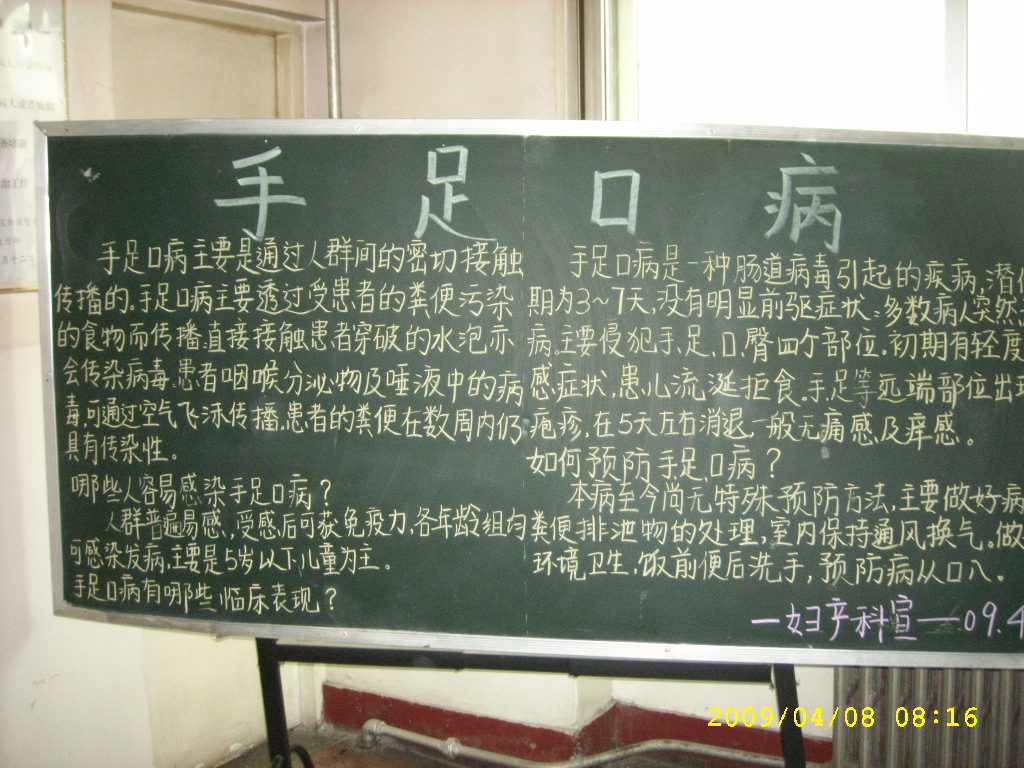 手足口病
手足口病主要是通过人群间的密切接触
传播的,手足口病主要透过受患者的粪便污染
的食物而传播.直接接触患者穿破的水泡亦
会传染病毒.患者咽喉分泌物及唾液中的病
毒可通过空气飞沫传播.患者的粪便在数周内仍
具有传染性。
哪些人容易感染手足口病?
人群普遍易感,受感后可获免疫力,各年龄组均
可感染发病,主要是5岁以下儿童为主。
手足口病有哪些临床表现?
手足口病是一种肠道病毒引起的疾病,潜伏
期为3~7天,没有明显前驱症状.多数病人突然
病.主要侵犯手.足.口.臀四个部位.初期有轻度
感症状,患儿流涎拒食.手足等远端部位出现
疱疹,在5天左右消退,一般无痛感及痒感。
如何预防手足口病?
本病至今尚无特殊预防方法,主要做好病
粪便排泄物的处理,室内保持通风换气。做
环境卫生,饭前便后洗手,预防病从口入。
一妇产科宣一09.4
病人或者
培训
治工作
月十二日
2009/04/08 08:16